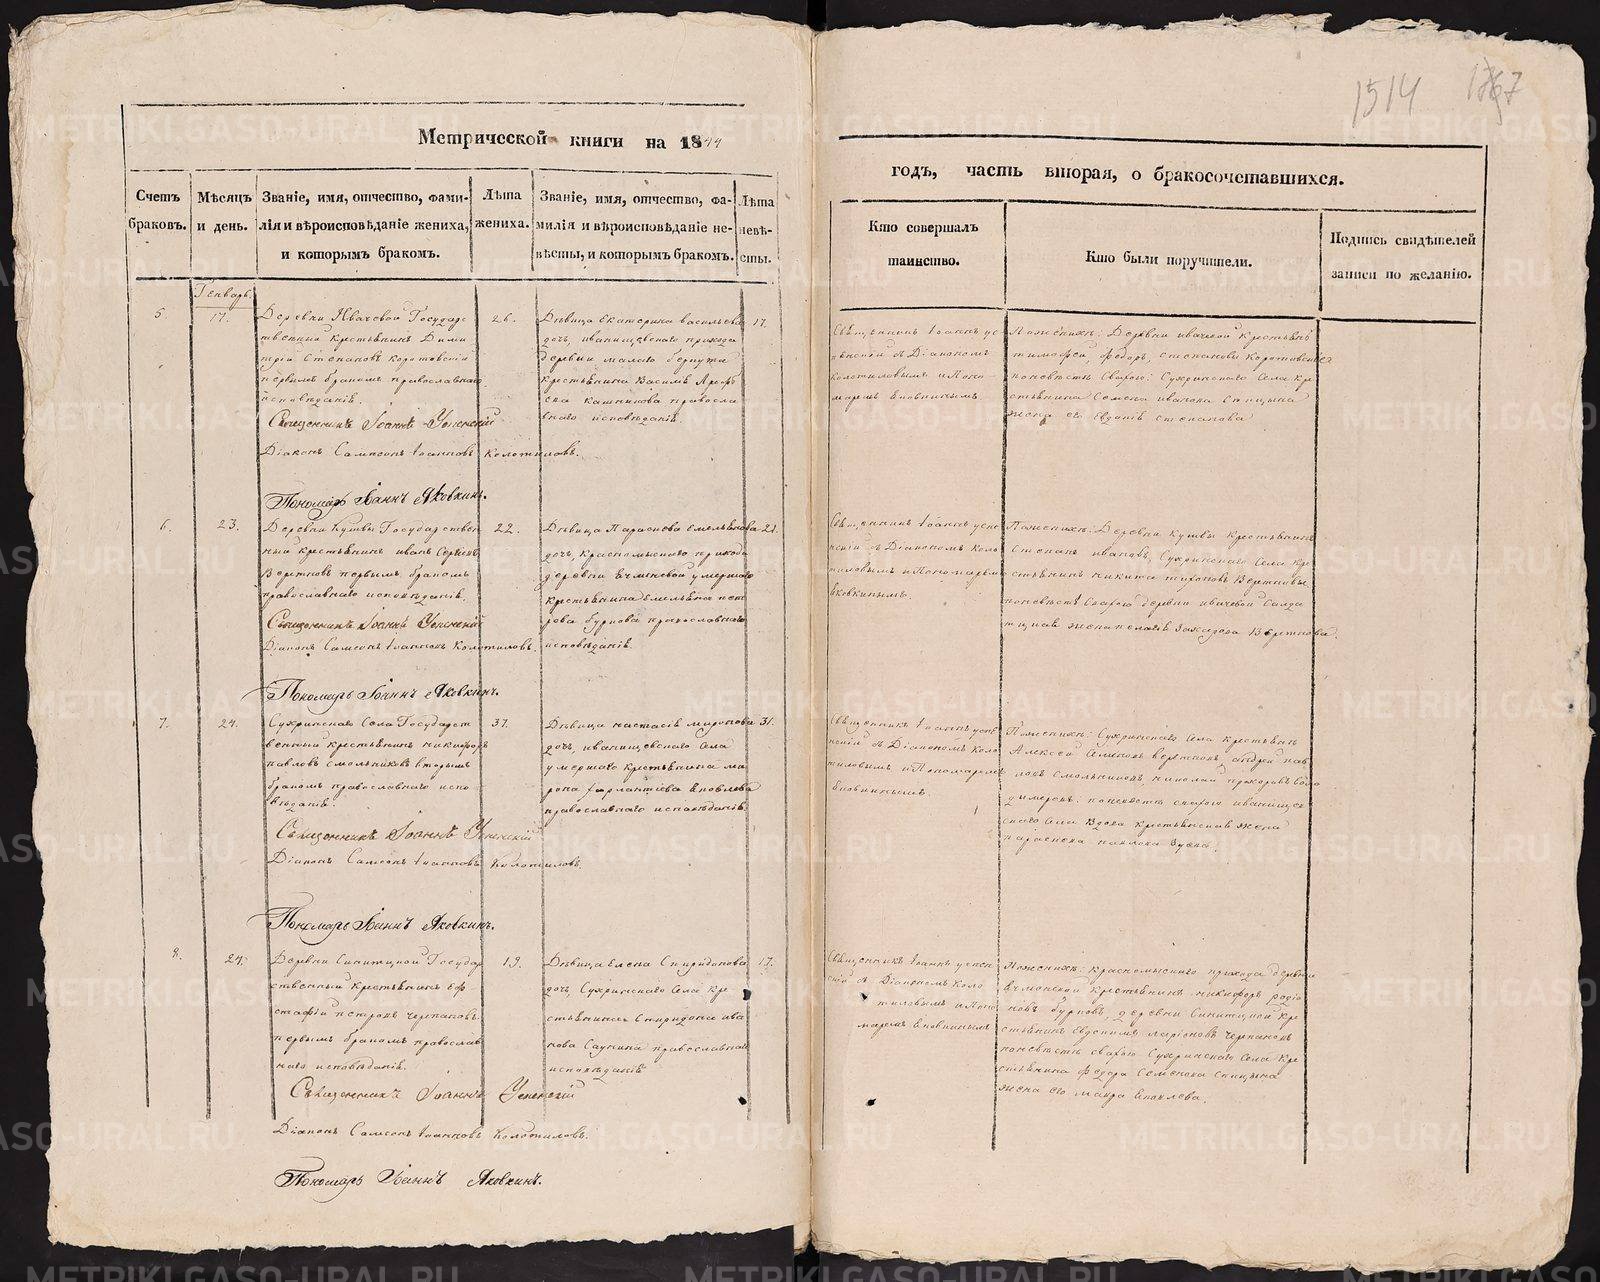 1514
Метрической книги на 1844
годъ, часть вторая, о бракосочетавшихся.
Счетъ браковъ.
Мѣсяцъ и день.
Званіе, имя, отчество, фами-
лія и вѣроисповѣданіе жениха,
и которымъ бракомъ.
Лѣта
жениха.
Званіе, имя, отчество, фа-
милія и вѣроисповѣданіе не-
вѣсты, и которымъ бракомъ.
Лѣта
невѣ-
сты.
Кто совершалъ
таинство.
Кто были поручители.
Подпись свидѣтелей
записи по желанію.
Генварь.
5.
17.
Деревни Ивачевой Государс
твенный крестьянинъ Дими
трій Степановъ Коротовскій
первымъ бракомъ православнаго
исповѣданія.
26.
Дѣвица Екатерина Васильева
дочь, иванищевскаго прихода
крестьянина Василья
православнаго исповѣданія
17.
Священникъ Іоаннъ Ус
пенскій съ Діакономъ
Колотиловымъ и Поно
маремъ Яковкинымъ.
По женихѣ: Деревни Ивачевой крестьяне
Тимофей, Федоръ, Степановы Коротовскіе
по невѣстѣ Свахою: Сухринскаго Села кре
стьянина Семена Иванова Спицына
жена его Степанова
Священникъ Іоаннъ Успенскій
Діаконъ Самсонъ Іоанновъ Колотиловъ.
Пономарь Іоаннъ Яковкинъ.
6.
23.
Государствен
ный крестьянинъ Иванъ
первымъ бракомъ
православнаго исповѣданія.
22.
Дѣвица Параскева Емельянова
дочь, Красномысскаго прихода
деревни Ячменевой умершаго
крестьянина Емельяна Пет
рова Бурнова православнаго
исповѣданія.
21.
Священникъ Іоаннъ Успе
нскій съ Діакономъ Коло
тиловымъ и Пономаремъ
Яковкинымъ.
По женихѣ: Деревни крестьянинъ
Степанъ Ивановъ, Сухринскаго Села кре
стьянинъ Никита Тихоновъ
по невѣстѣ Свахою деревни Ивачевой Солда
тская жена Захарова
Священникъ Іоаннъ Успенскій
Діаконъ Самсонъ Іоанновъ Колотиловъ.
Пономарь Іоаннъ Яковкинъ.
7.
24.
Сухринскаго Села Государст
венный крестьянинъ Никифоръ
Павловъ Смольниковъ вторымъ
бракомъ православнаго испо
вѣданія.
37.
Дѣвица Настасія Миронова
дочь, иванищевскаго Села
умершаго крестьянина Ми
рона Яковлева
православнаго исповѣданія
31.
Священникъ Іоаннъ Успе
нскій съ Діакономъ Коло
тиловымъ и Пономаремъ
Яковкинымъ.
По женихѣ: Сухринскаго Села крестьяне
Алексей Андрей Пав
ловъ Смольниковъ, Николай Прохоровъ
по невѣстѣ свахою иванищев
скаго Села вдова крестьянская жена
Параскева Павлова
Священникъ Іоаннъ Успенскій
Діаконъ Самсонъ Іоанновъ Колотиловъ.
Пономарь Іоаннъ Яковкинъ.
8.
24.
Деревни Синицыной Государ
ственный Крестьянинъ Ев
стафій Петровъ Черпаковъ
первымъ бракомъ православ
наго исповѣданія.
19.
Дѣвица Елена Спиридонова
дочь, Сухринскаго Села кре
стьянина Спиридона Ива
нова Саунина православнаго
исповѣданія
17.
Священникъ Іоаннъ Успен
скій съ Діакономъ Коло
тиловымъ и Поно
маремъ Яковкинымъ
По женихѣ: Красномысскаго прихода деревни
Ячменевой Крестьянинъ Никифоръ Родіо
новъ Бурновъ, деревни Синицыной Кре
стьянинъ Черпаковъ
по невѣстѣ свахою Сухринскаго Села кре
стьянина Федора Семенова Спицына
жена его Мавра Яковлева.
Священникъ Іоаннъ Успенскій
Діаконъ Самсонъ Іоанновъ Колотиловъ.
Пономарь Іоаннъ Яковкинъ.
METRIKI.GASO-URAL.RU